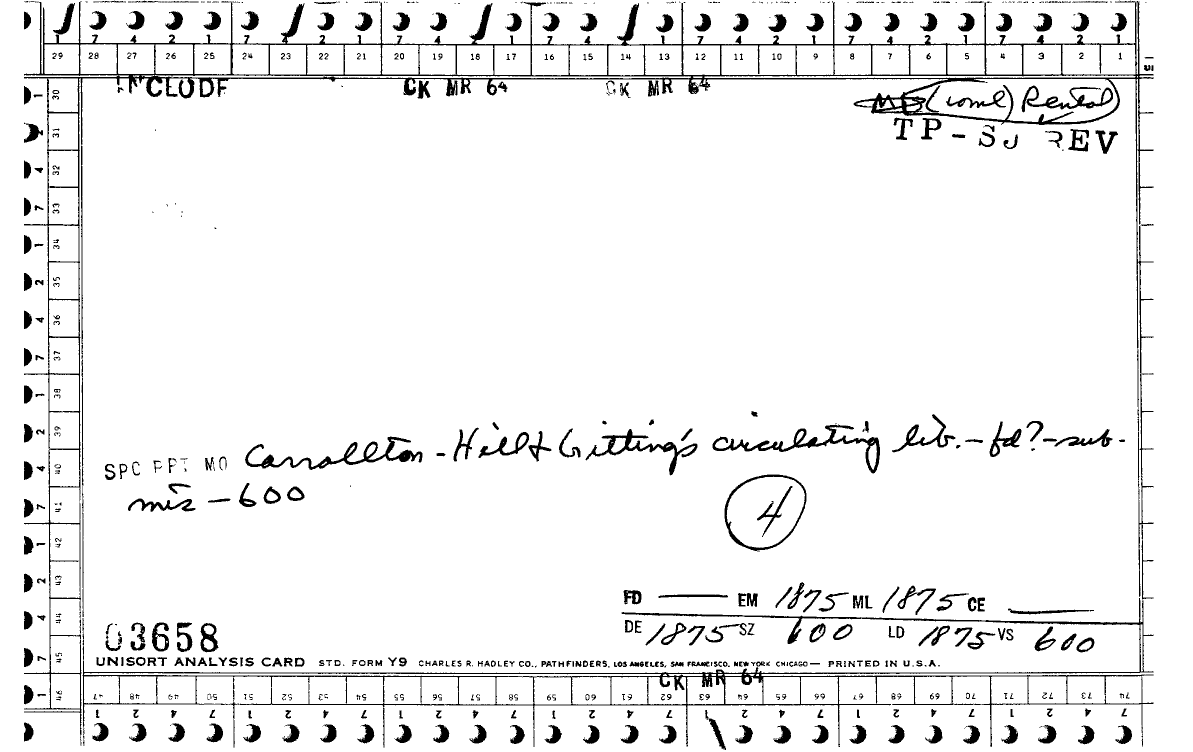 7 4 2 1 7 4 2 1 7 4 2 1 7 4 2 1 7 4 2 1 7 4 2 1 7 4 2 1
29 28 27 26 25 24 23 22 21 20 19 18 17 16 15 14 13 12 11 10 9 8 7 6 5 4 3 2 1
INCLUDE CK MR 64 CK MR 64
(coml) Rental
TP-SU REV
30
31
4 32
7 33
1 34
2 35
4 36
7 37
1 38
2 39
4 40
7 41
1 42
2 43
4 44
7 45
1 46
SPC RPT MO Carrollton - Hill & Gitting's circulating lib. - fd? - sub-
mis - 600
4
FD — EM 1875 ML 1875 CE —
DE 1875 SZ 600 LD 1875 VS 600
03658
UNISORT ANALYSIS CARD STD. FORM Y9 CHARLES R. HADLEY CO., PATHFINDERS, LOS ANGELES, SAN FRANCISCO, NEW YORK CHICAGO — PRINTED IN U.S.A.
CK MR 64
47 48 49 50 51 52 53 54 55 56 57 58 59 60 61 62 63 64 65 66 67 68 69 70 71 72 73 74
1 2 4 7 1 2 4 7 1 2 4 7 1 2 4 7 1 2 4 7 1 2 4 7 1 2 4 7